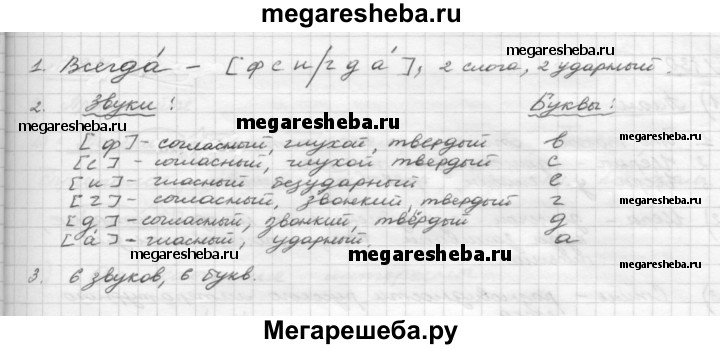 megaresheba.ru
1. Всегда́ – [фсиг/да́], 2 слога, 2 ударный.
megaresheba.ru
2. Звуки: Буквы:
megaresheba.ru
megaresheba.ru
[ф] – согласный, глухой, твердый в
[с] – согласный, глухой твердый с
megaresheba.ru
[и] – гласный безударный е
[г] – согласный, звонкий, твердый г
megaresheba.ru
[д] – согласный, звонкий, твёрдый д
[а́] – гласный, ударный. а
megaresheba.ru
megaresheba.ru
3. 6 звуков, 6 букв.
Мегарешеба.ру